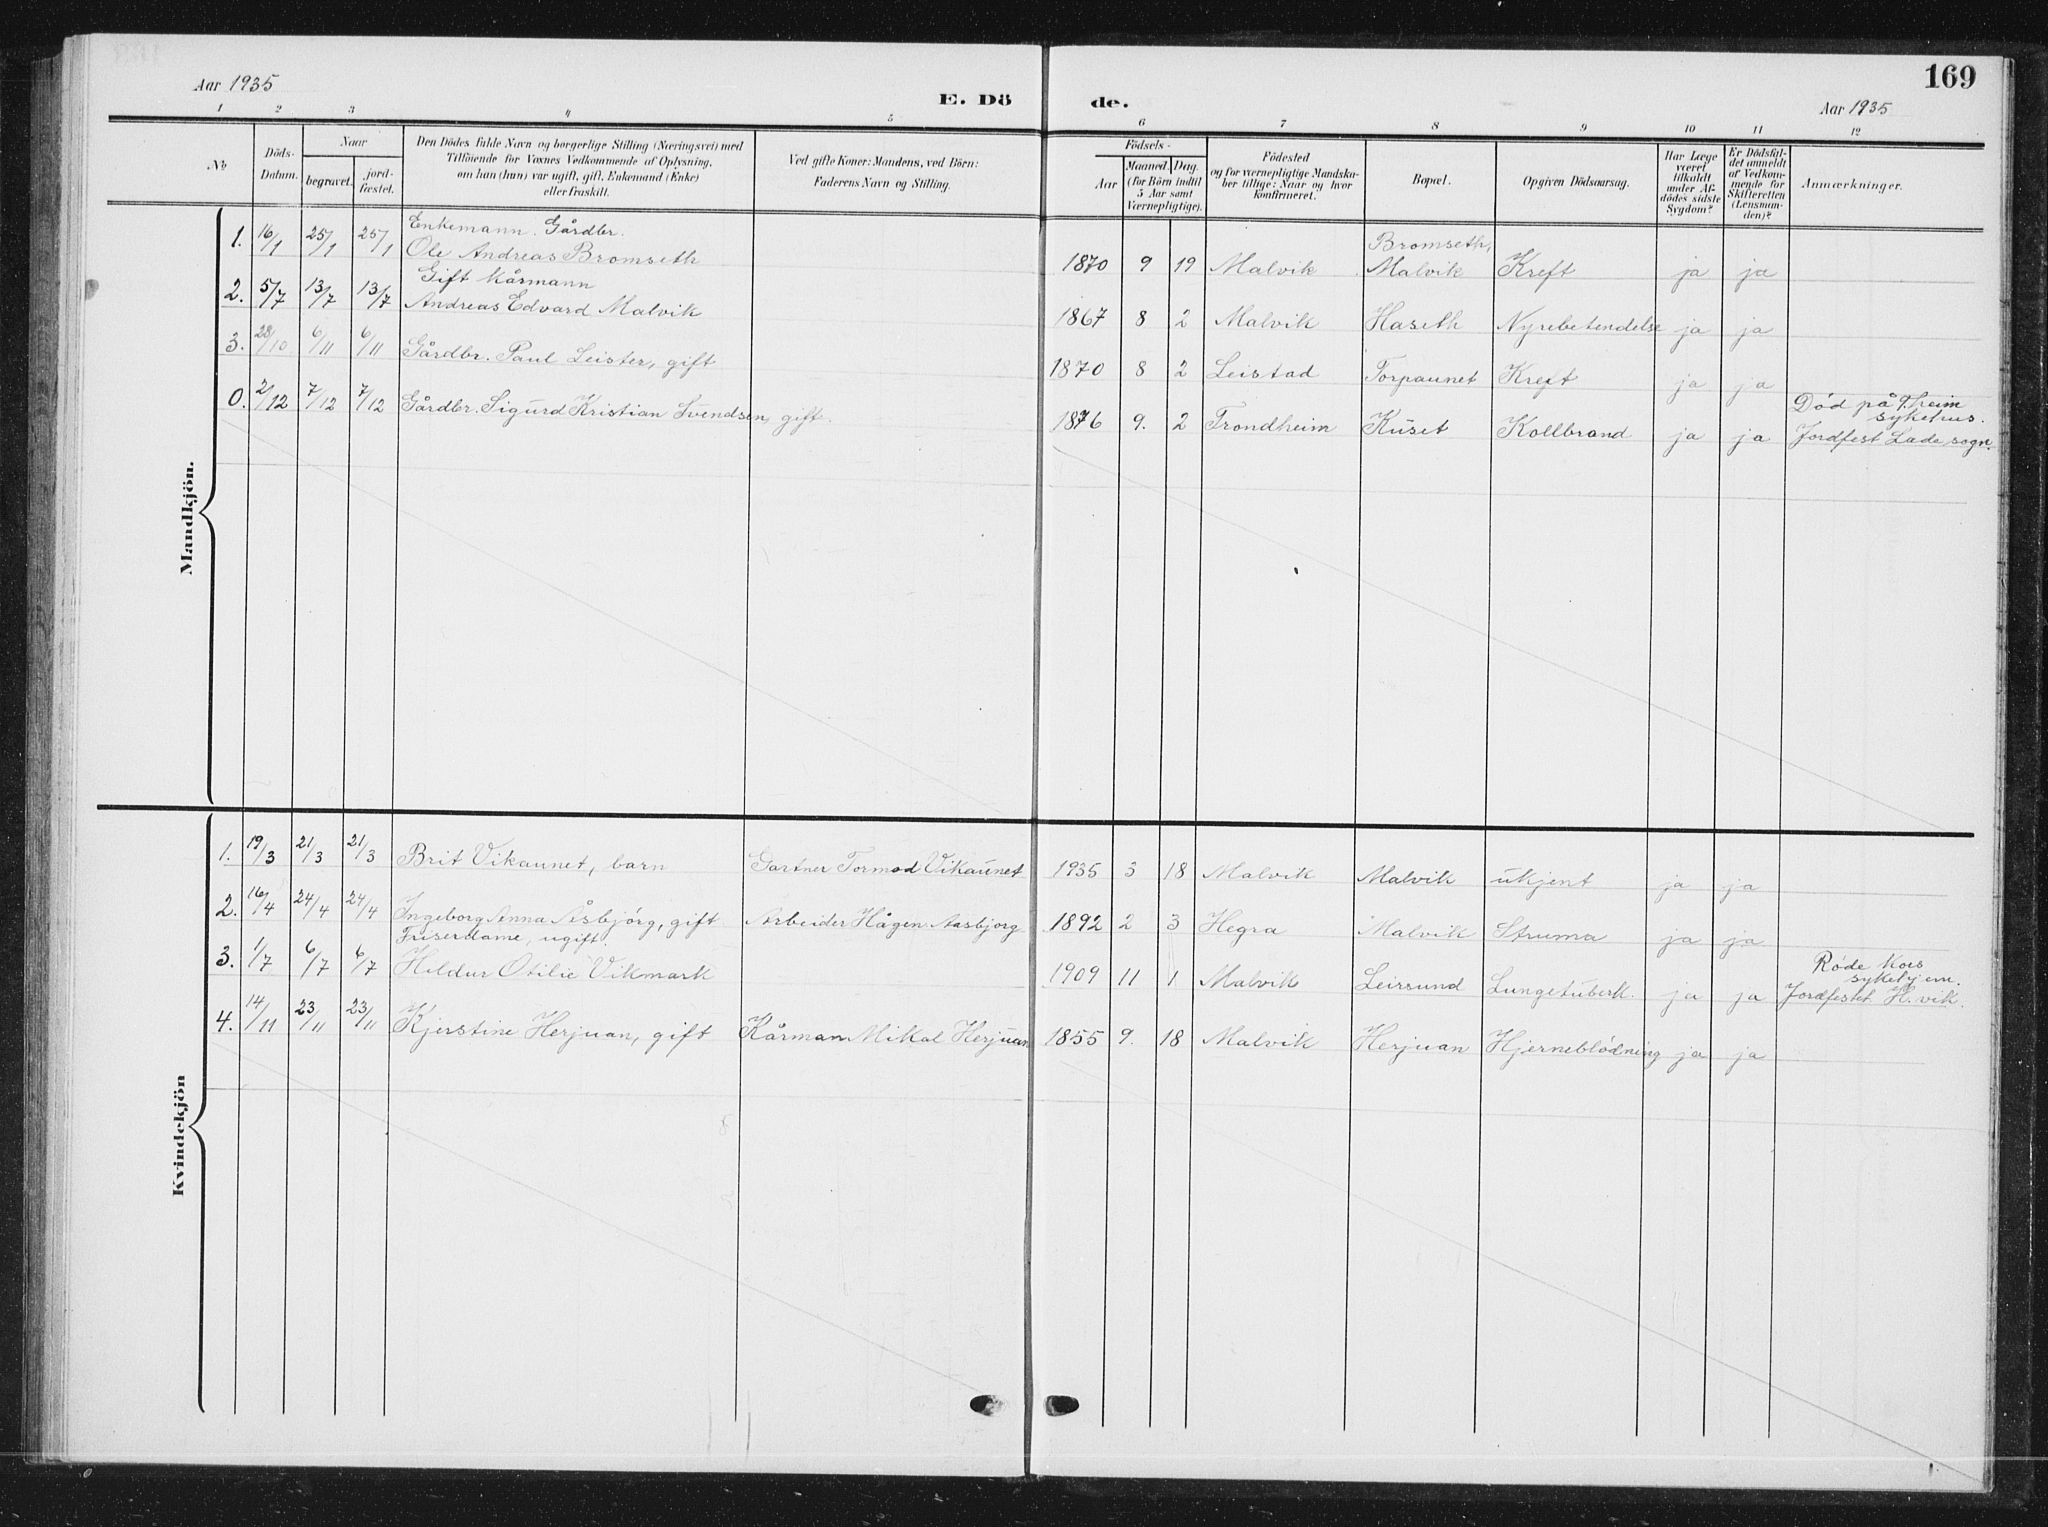 169
Aar 1935
E. Dö
de.
Aar 1935
1 2 3 4 5 6 7 8 9 10 11 12
No
Döds-Datum.
Naar
begravet.
jord-fæstet.
Den Dödes fulde Navn og borgerlige Stilling (Næringsvei) med
Tilföiende for Voxnes Vedkommende af Oplysning,
om han (hun) var ugift, gift, Enkemand (Enke)
eller fraskilt.
Ved gifte Koner: Mandens, ved Börn:
Faderens Navn og Stilling.
Födsels-
Aar
Maaned. Dag.
(for Börn indtil
5 Aar samt
Værnepligtige).
Födested
og for værnepligtige Mandska-
ber tillige: Naar og hvor
konfirmeret.
Bopæl.
Opgiven Dödsaarsag.
Har Læge
været
tilkaldt
under Af-
dödes sidste
Sygdom?
Er Dödsfal-
det anmeldt
af Vedkom-
mende for
Skifteretten
(Lensman-
den)?
Anmærkninger.
Mandkjön.
Enkemann. Gårdbr.
Bromseth,
1. 16/1 25/1 25/1 Ole Andreas Bromseth 1870 9 19 Malvik Malvik Kreft ja ja
Gift Kårmann
2. 5/7 13/7 13/7 Andreas Edvard Malvik 1867 8 2 Malvik Haseth Nyrebetendelse ja ja
3. 28/10 6/11 6/11 Gårdbr. Paul Leister, gift 1870 8 2 Leistad Torpaunet Kreft ja ja
Död på T.heim
sykehus.
0. 2/12 7/12 7/12 Gårdbr. Sigurd Kristian Svendsen, gift. 1876 9. 2 Trondheim Kuset Kollbrand ja ja Jordfest Lade sogn.
Kvindekjön
1. 19/3 21/3 21/3 Brit Vikaunet, barn Gartner Tormod Vikaunet 1935 3 18 Malvik Malvik ukjent ja ja
2. 16/4 24/4 24/4 Ingeborg Anna Åsbjörg, gift Arbeider Hågen Aasbjorg 1892 2 3 Hegra Malvik Struma ja ja
Friserdame, ugift.
Röde Kors
sykehjem.
3. 1/7 6/7 6/7 Hildur Otilie Vikmark 1909 11 1 Malvik Leirsund Lungetuberk. ja ja Jordfestet H.vik.
4. 14/11 23/11 23/11 Kjerstine Herjuan, gift Kårman Mikal Herjuan 1855 9. 18 Malvik Herjuan Hjerneblödning ja ja